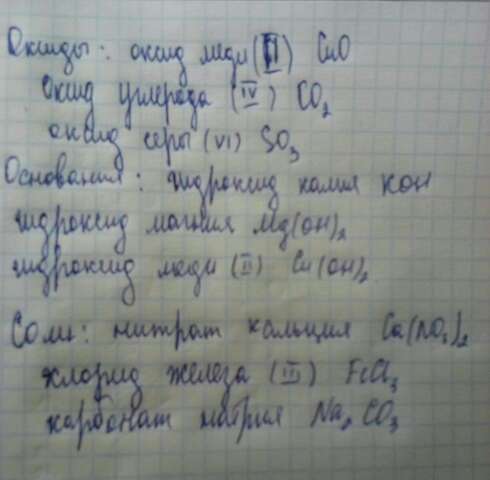 Оксиды: оксид меди (II) CuO
Оксид углерода (IV) CO₂
оксид серы (VI) SO₃
Основания: гидроксид калия KOH
гидроксид магния Mg(OH)₂
гидроксид меди (II) Cu(OH)₂
Соли: нитрат кальция Ca(NO₃)₂
хлорид железа (III) FeCl₃
карбонат натрия Na₂CO₃